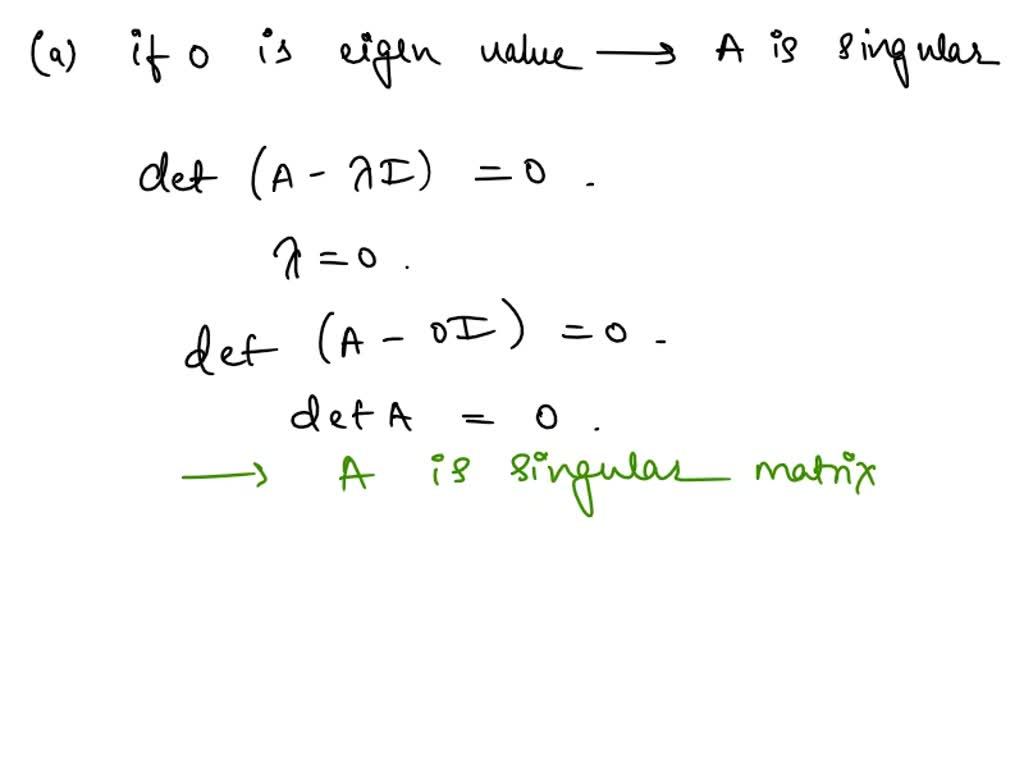 (a) if 0 is eigen value → A is singular
det (A - λI) = 0 .
λ = 0 .
def (A - 0I) = 0 .
det A = 0 .
→ A is singular matrix